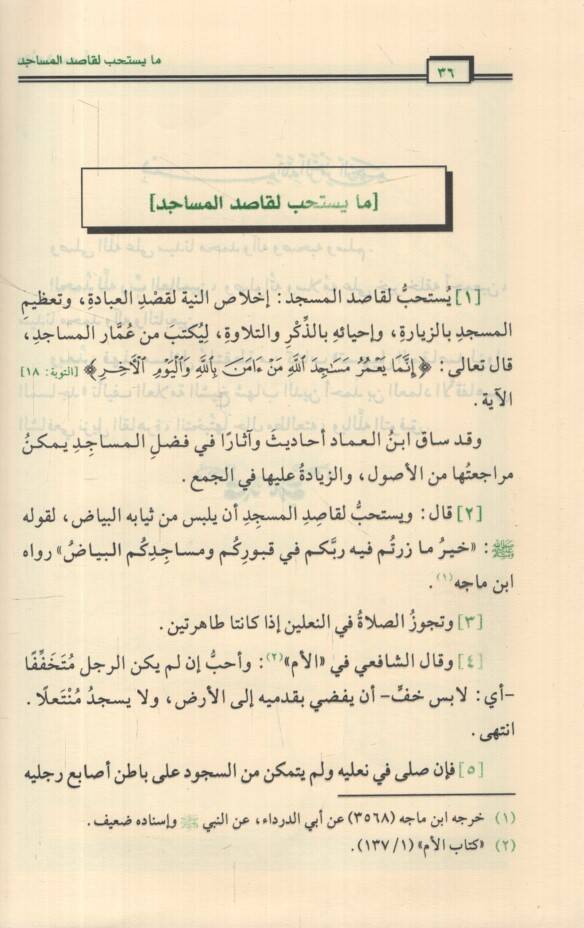 ٣٦
ما يستحب لقاصد المساجد
[ما يستحب لقاصد المساجد]
[١] يُستحبُّ لقاصد المسجد: إخلاص النية لقصْدِ العبادةِ، وتعظيم
المسجدِ بالزيارةِ، وإحيائهِ بالذِّكْرِ والتلاوةِ، لِيُكتبَ من عُمَّار المساجدِ،
قال تعالى: ﴿إِنَّمَا يَعْمُرُ مَسَاجِدَ اللَّهِ مَنْ ءَامَنَ بِاللَّهِ وَالْيَوْمِ الْآخِرِ﴾ [التوبة: ١٨]
الآية.
وقد ساق ابنُ العماد أحاديثَ وآثارًا في فضلِ المساجدِ يمكنُ
مراجعتُها من الأصول، والزيادةُ عليها في الجمع.
[٢] قال: ويستحبُّ لقاصِدِ المسجدِ أن يلبس من ثيابه البياض، لقوله
ﷺ: «خيرُ ما زرتُم فيه ربَّكم في قبورِكُم ومساجدِكُم البياضُ» رواه
ابن ماجه(١).
[٣] وتجوزُ الصلاةُ في النعلين إذا كانتا طاهرتين.
[٤] وقال الشافعي في «الأم»(٢): وأحبُّ إن لم يكن الرجل مُتَخَفِّفًا
-أي: لابس خفٍّ- أن يفضي بقدميه إلى الأرض، ولا يسجدُ مُنْتَعلًا.
انتهى.
[٥] فإن صلى في نعليه ولم يتمكن من السجود على باطن أصابع رجليه
(١) خرجه ابن ماجه (٣٥٦٨) عن أبي الدرداء، عن النبي ﷺ وإسناده ضعيف.
(٢) «كتاب الأم» (١/ ١٣٧).